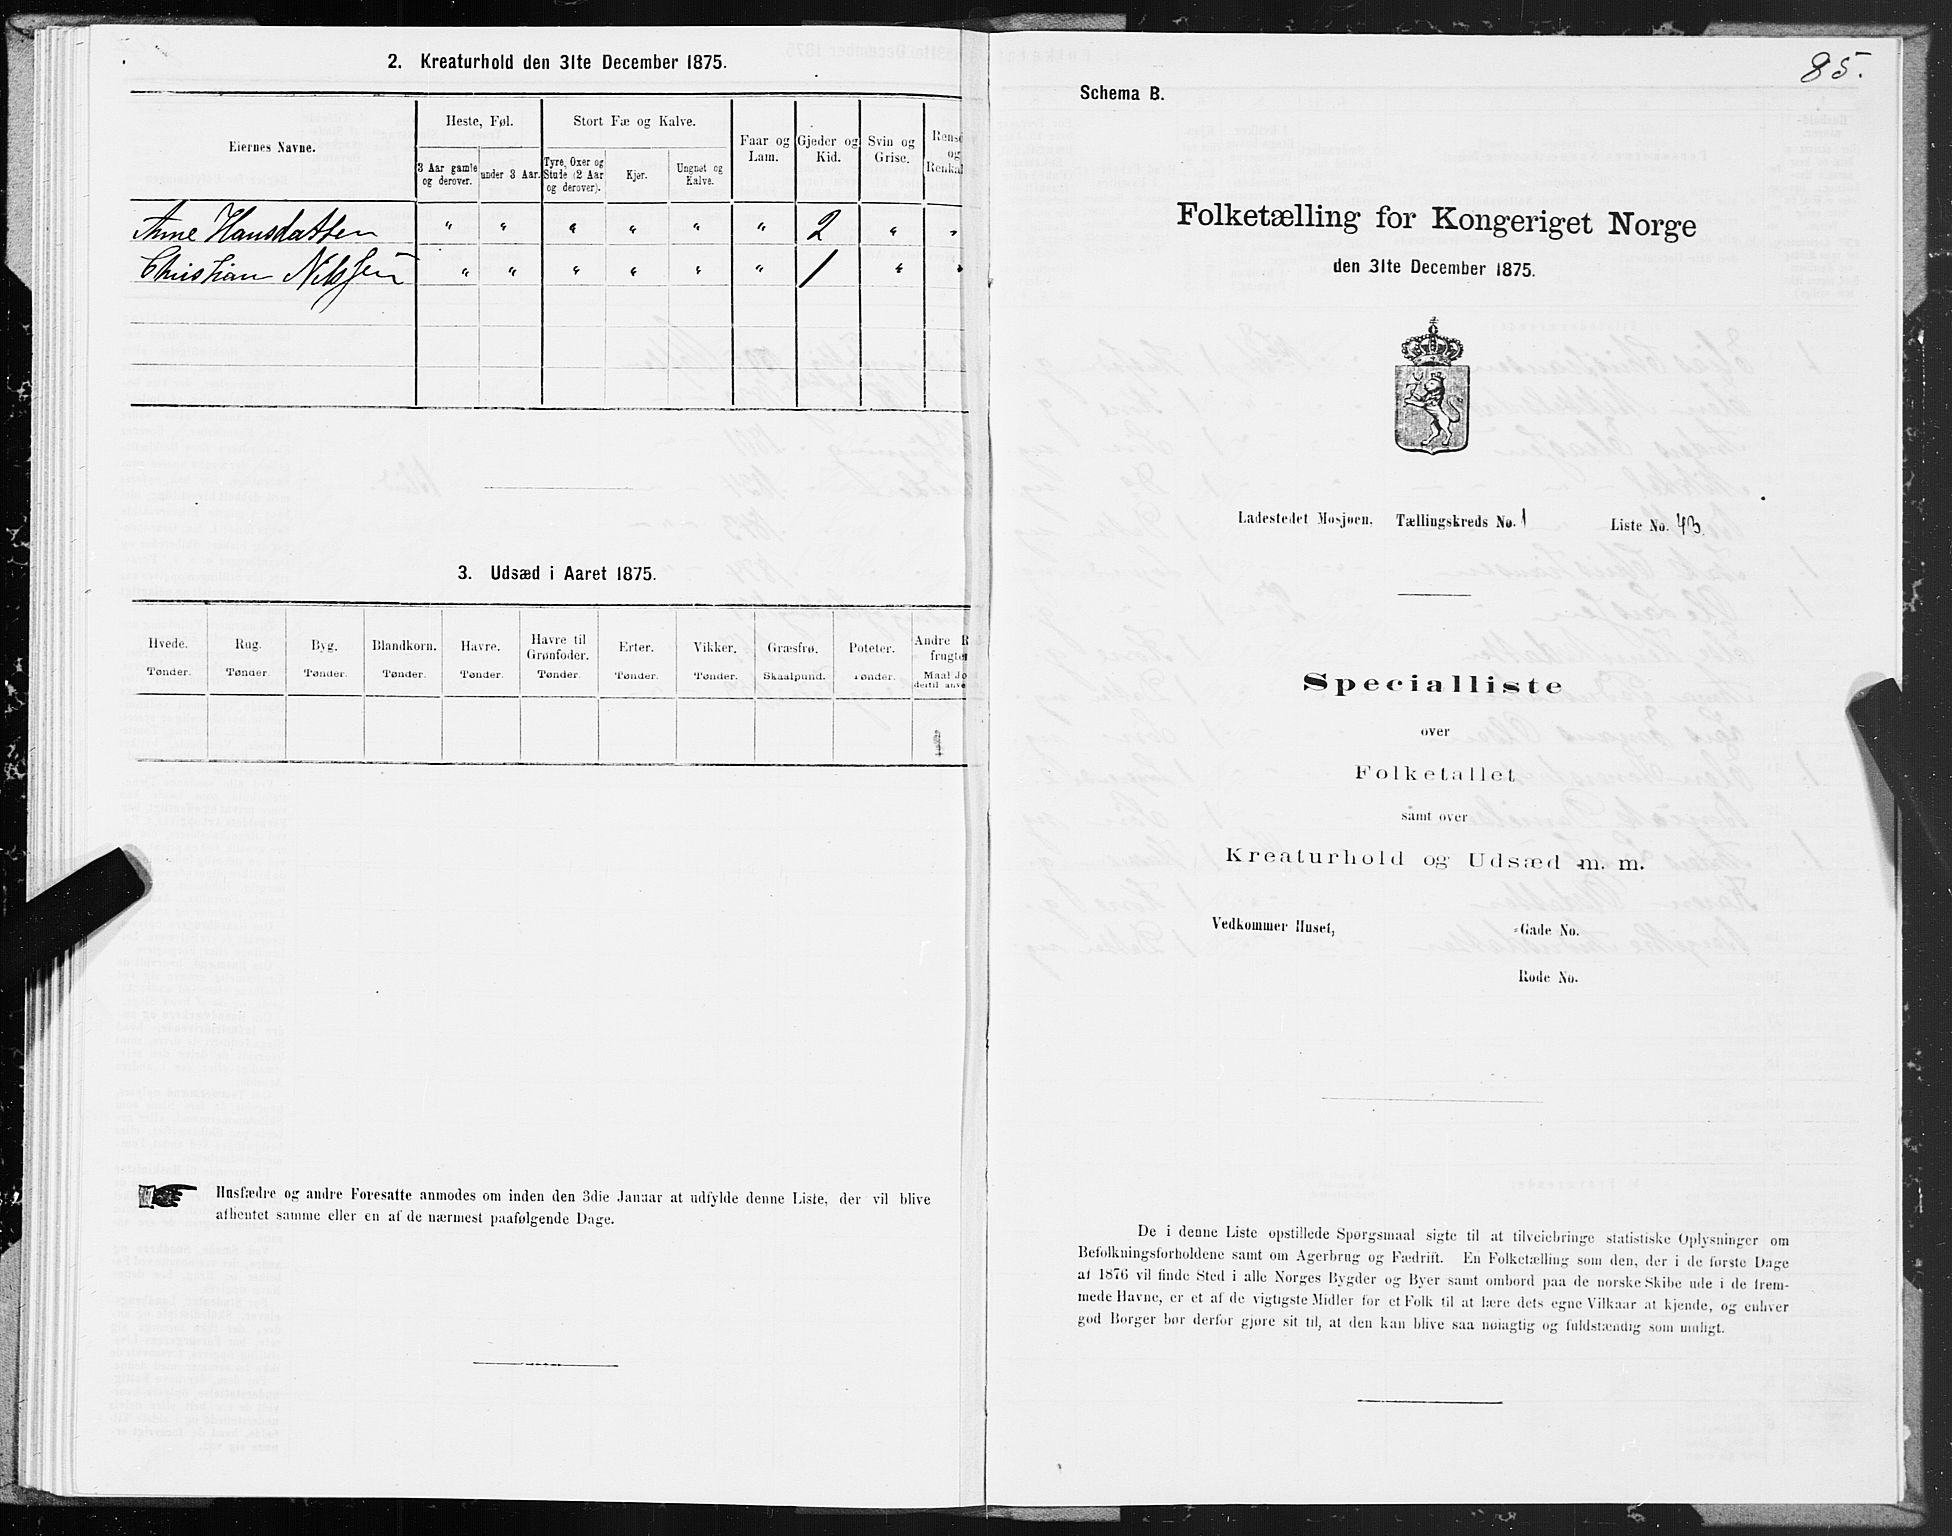 2. Kreaturhold den 31te December 1875.
Eiernes Navne.
Heste, Føl.
Stort Fæ og Kalve.
Faar og Lam.
Gjeder og Kid.
Svin og Grise.
3 Aar gamle og derover.
under 3 Aar.
Tyre, Oxer og Stude (2 Aar og derover).
Kjør.
Ungnøt og Kalve.
Anne Hansdatter " " " " " " 2 " "
Christian Nilssen " " " " " " 1 " "
3. Udsæd i Aaret 1875.
Hvede. Rug. Byg. Blandkorn. Havre. Havre til Grønfoder. Erter. Vikker. Græsfrø. Poteter.
Tønder. Tønder. Tønder. Tønder. Tønder. Tønder. Tønder. Tønder. Skaalpund. Tønder.
Husfædre og andre Foresatte anmodes om inden den 3die Januar at udfylde denne Liste, der vil blive
afhentet samme eller en af de nærmest paafølgende Dage.
85.
Schema B.
Folketælling for Kongeriget Norge
den 31te December 1875.
Ladestedet Mosjøen. Tællingskreds No. 1 Liste No. 43.
Specialliste
over
Folketallet
samt over
Kreaturhold og Udsæd m. m.
Vedkommer Huset, -Gade No.
Rode No.
De i denne Liste opstillede Spørgsmaal sigte til at tilveiebringe statistiske Oplysninger om
Befolkningsforholdene samt om Agerbrug og Fædrift. En Folketælling som den, der i de første Dage
af 1876 vil finde Sted i alle Norges Bygder og Byer samt ombord paa de norske Skibe ude i de frem-
mede Havne, er et af de vigtigste Midler for et Folk til at lære dets egne Vilkaar at kjende, og enhver
god Borger bør derfor gjøre sit til, at den kan blive saa nøiagtig og fuldstændig som muligt.